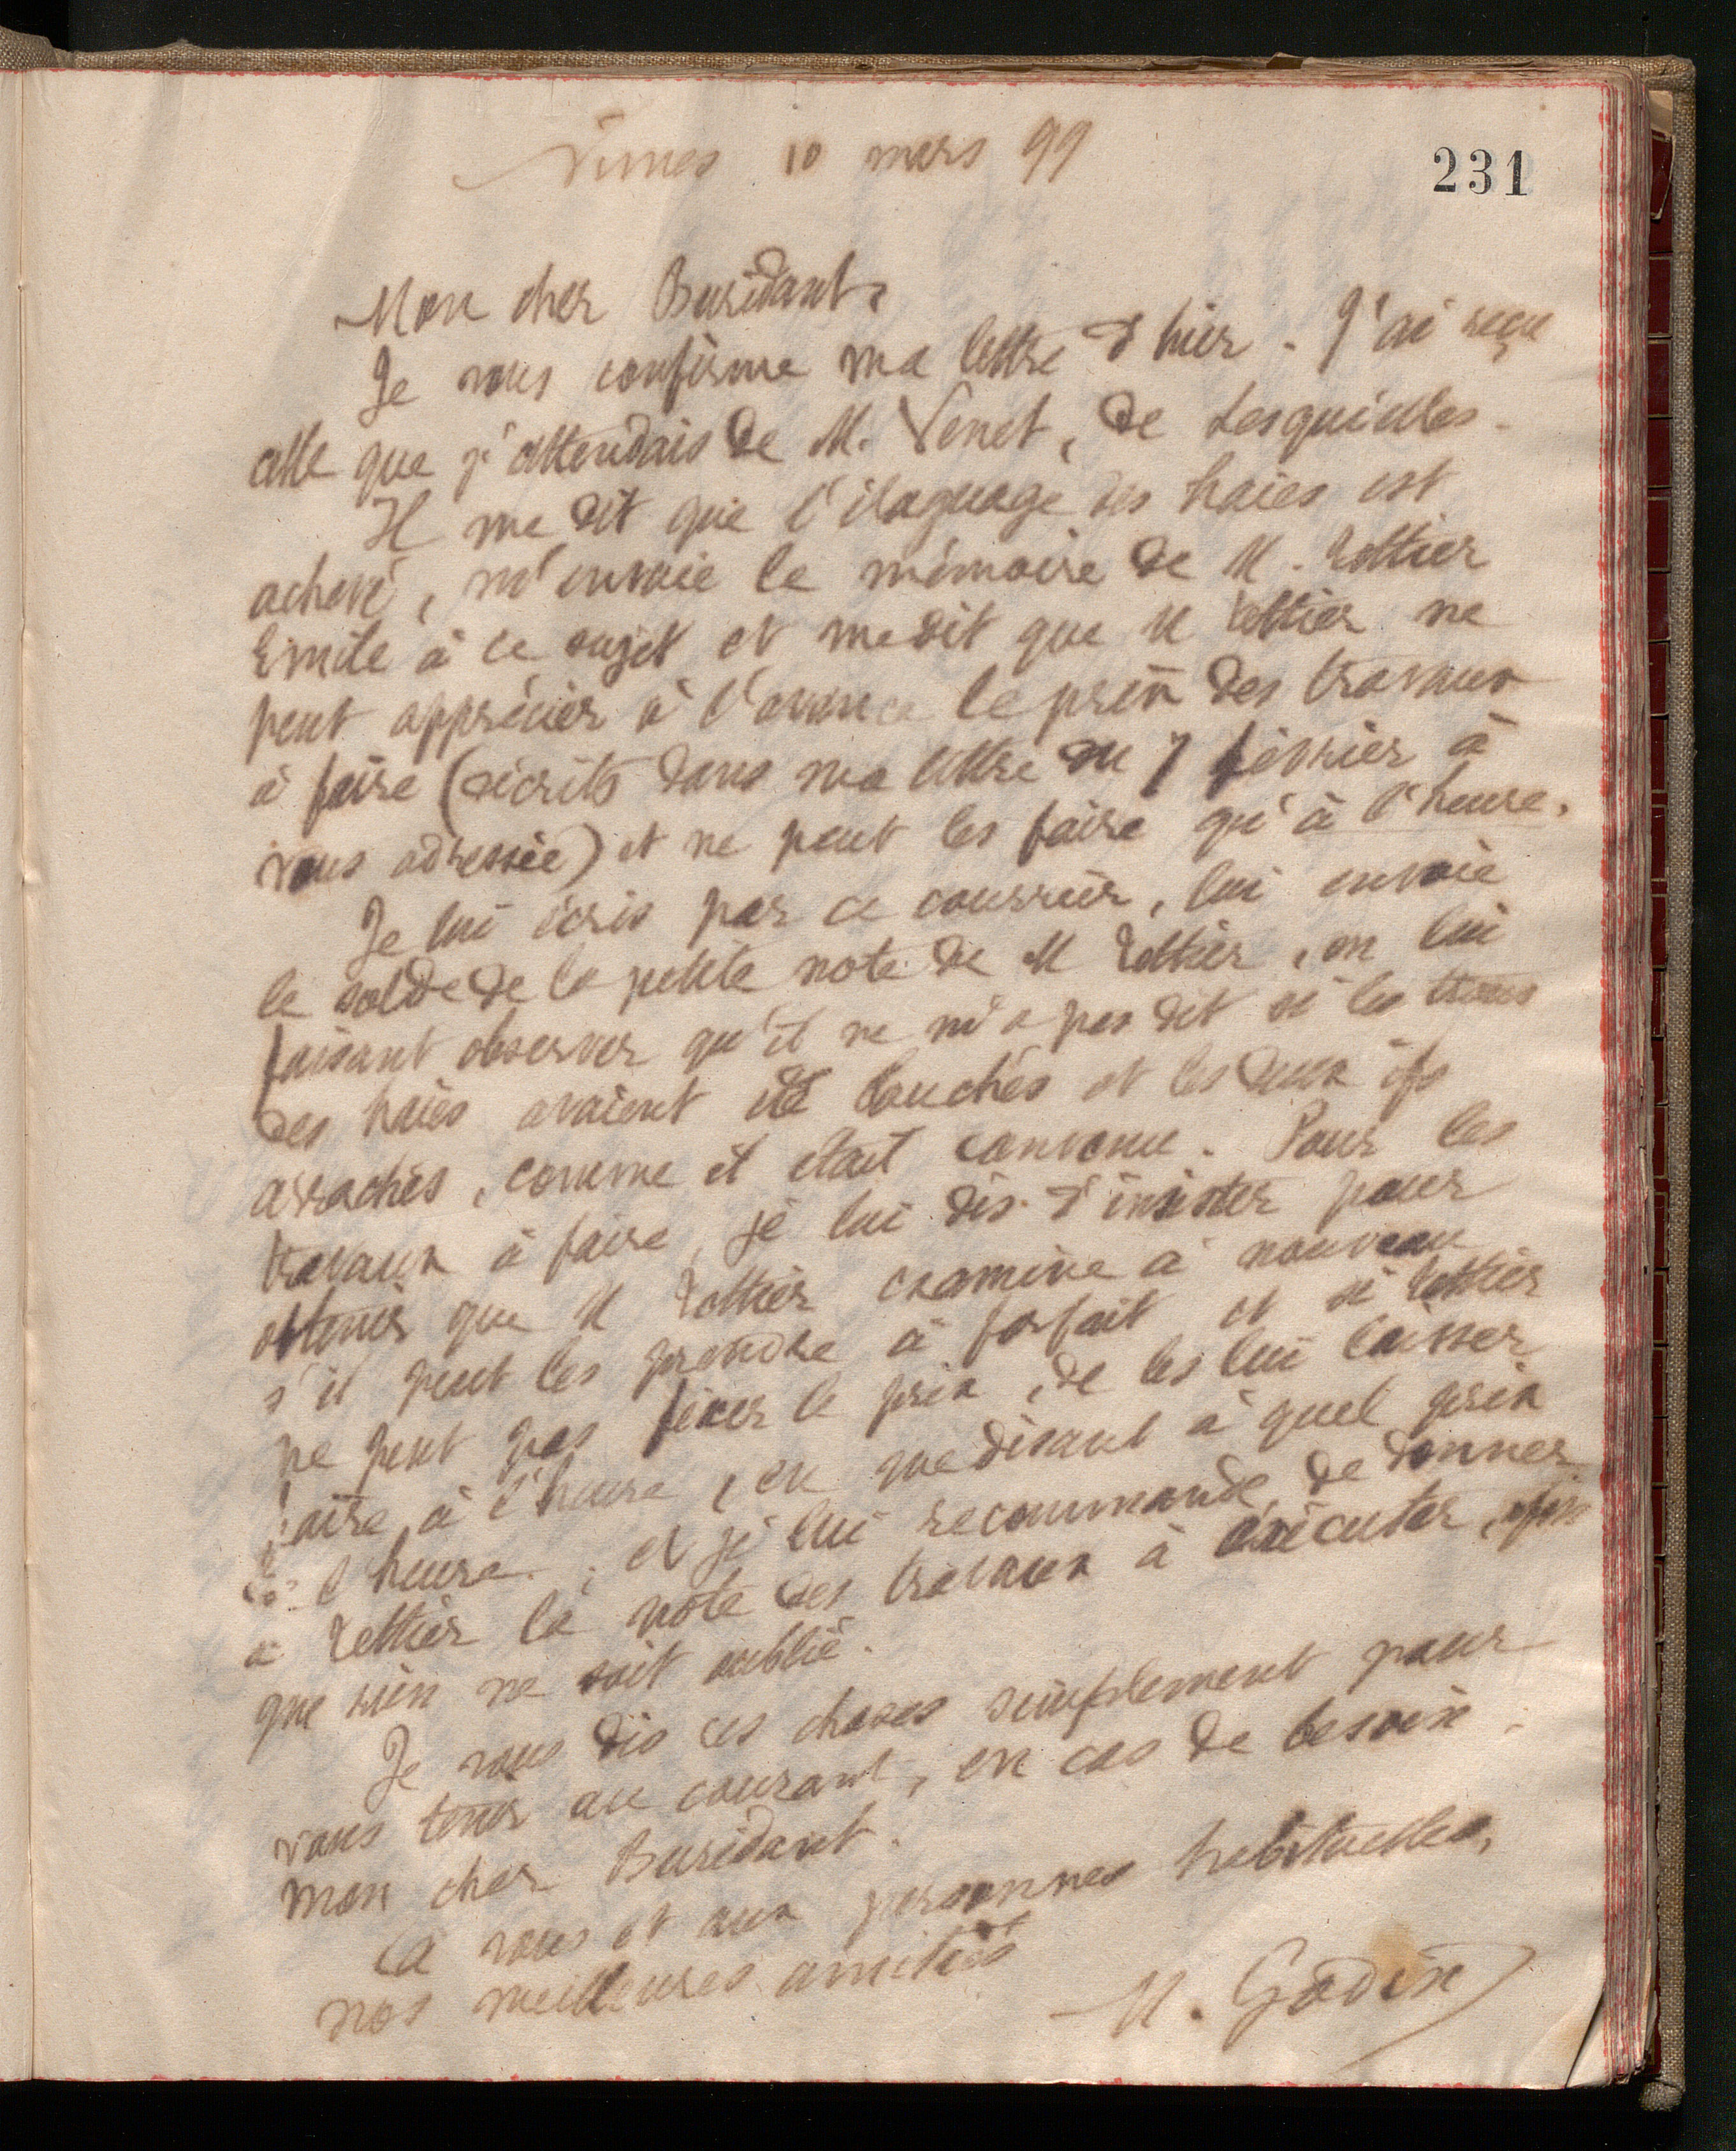 Nimes 10 mars 99
231
Mon cher Buridant,
Je vous confirme ma lettre d'hier. J'ai reçu
celle que j'attendais de M. Venet, de Lesquielles.
Il me dit que l'élaguage des haies est
achevé, m'envoie le mémoire de M.
Emile à ce sujet et me dit que M ne
peut apprécier à l'avance le prix des travaux
à faire (décrits dans ma lettre du 7 février à
vous adressée) et ne peut les faire qu'à l'heure.
Je lui écris par ce courrier, lui envoie
le solde de la petite note de M , en lui
faisant observer qu'il ne m'a pas dit si les
des haies avaient été bouchés et les deux ifs
arrachés, comme il était convenu. Pour les
travaux à faire, je lui dis d'insister pour
obtenir que M examine à nouveau
s'il peut les prendre à forfait et si
ne peut pas fixer le prix, de les lui laisser
faire à l'heure, en me disant à quel prix
l'heure. ; et je lui recommande de donner
à la note des travaux à exécuter, afin
que rien ne soit oublié.
Je vous dis ces choses simplement pour
vous tenir au courant, en cas de besoin.
mon cher Buridant.
A vous et aux personnes habituelles,
nos meilleures amitiés
M. Godin